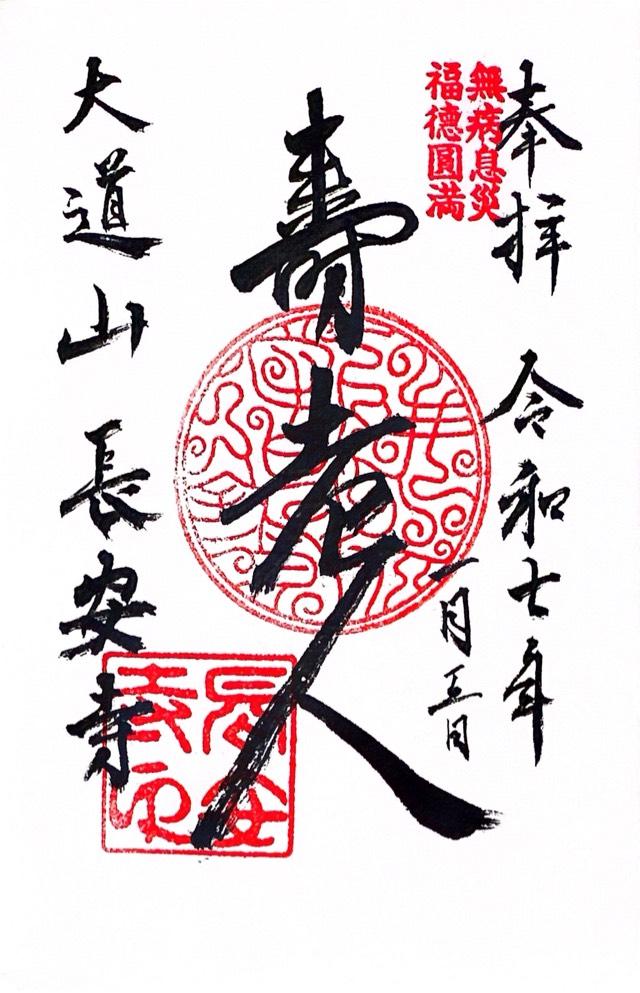 奉拝 令和七年
一月三日
無病息災
福徳圓満
壽老人
大道山 長安寺
長安寺印